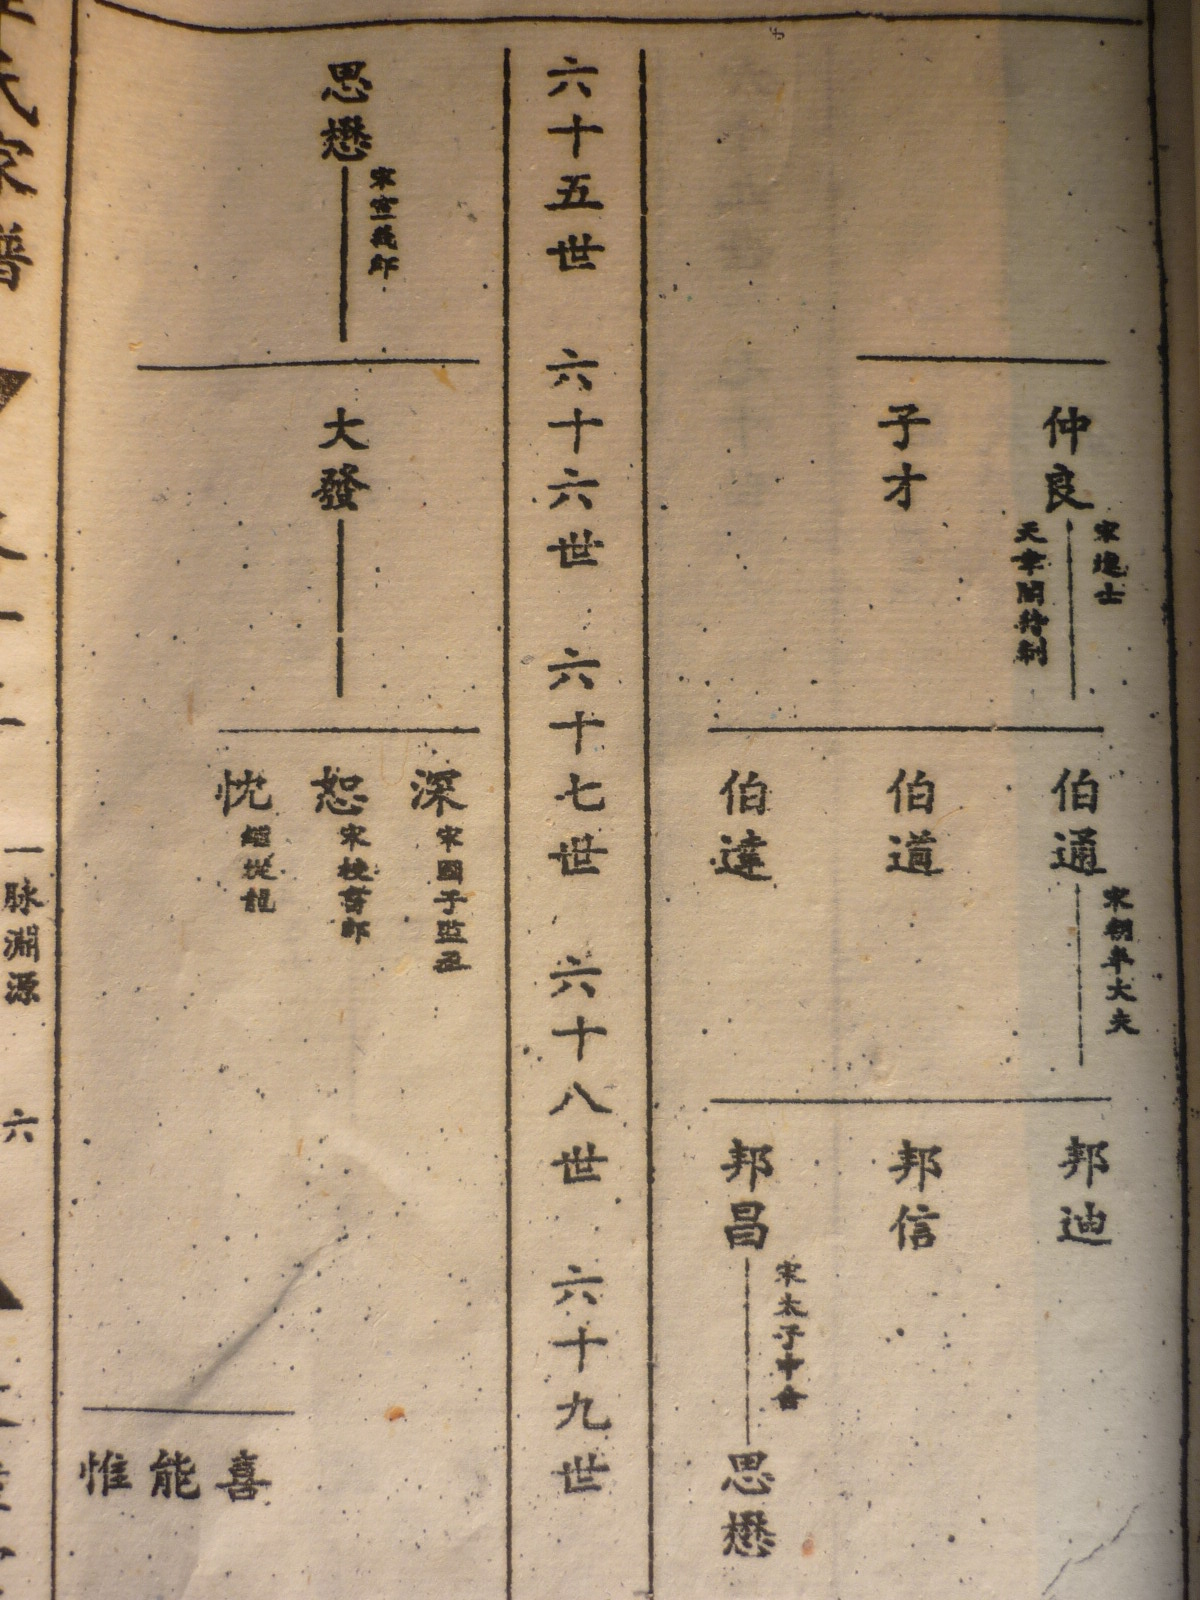 仲良
宋進士
天章閣待制
子才
伯通
宋朝奉大夫
伯道
伯達
邦迪
邦信
邦昌
宋太子中舍
思懋
六十五世
六十六世
六十七世
六十八世
六十九世
思懋
宋宣義郎
大發
深
宋國子監丞
恕
宋校書郎
忱
繼從龍
喜
能
惟
氏家譜
一脉淵源
六